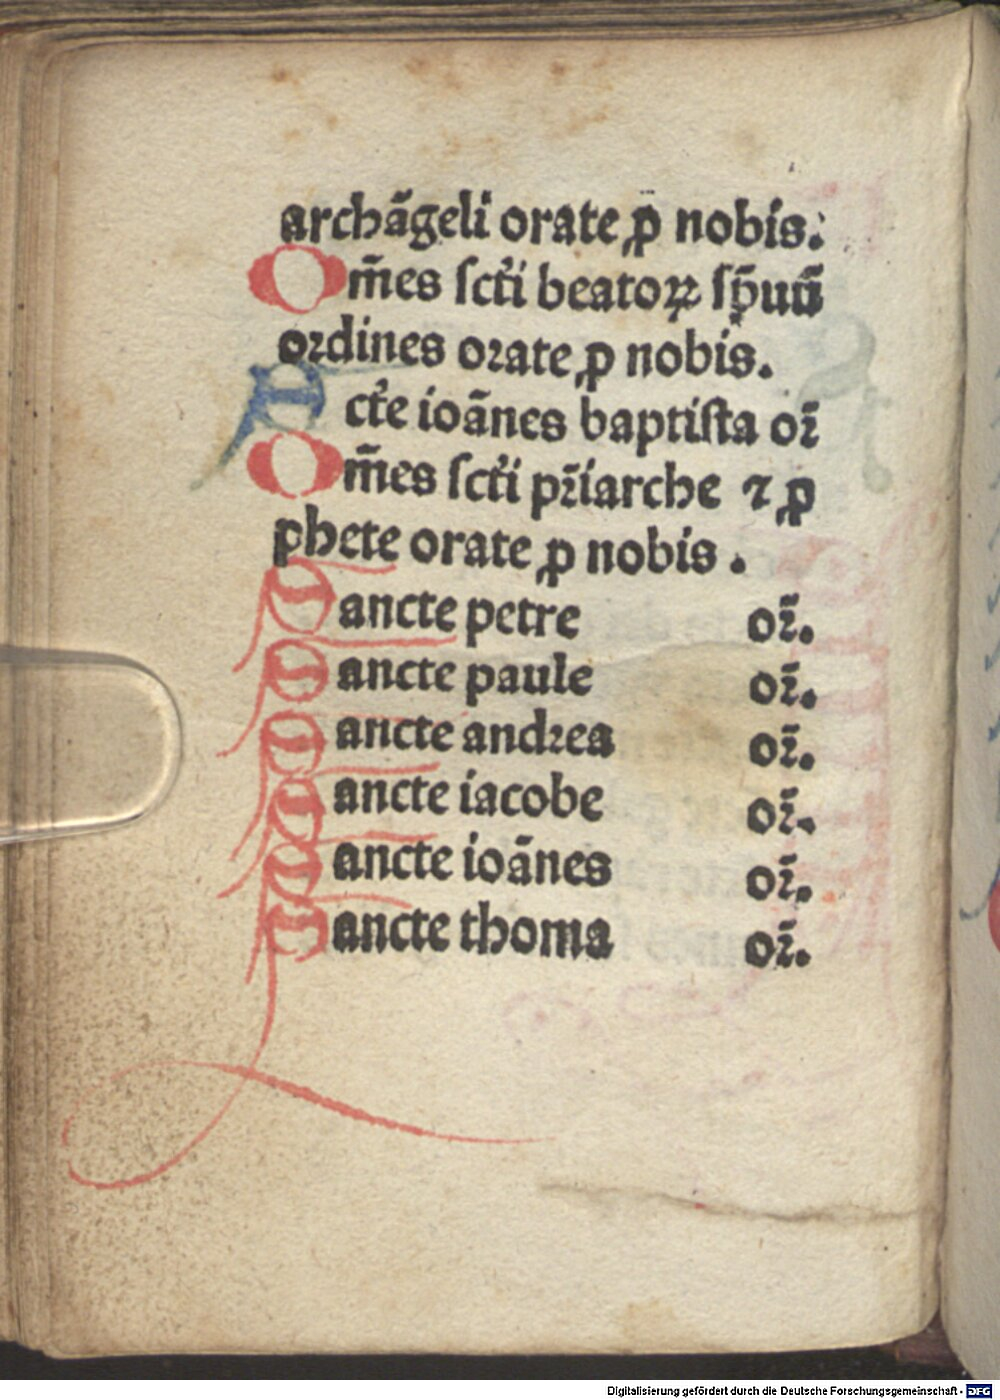 archãgeli orate ꝓ nobis.
Om̃es scti beatoꝝ sp̃uũ
ordines orate ꝓ nobis.
Scte ioãnes baptista or̃
Om̃es scti pr̃iarche ⁊ ꝓ
phete orate ꝓ nobis.
Sancte petre or̃.
Sancte paule or̃.
Sancte andrea or̃.
Sancte iacobe or̃.
Sancte ioãnes or̃.
Sancte thoma or̃.
Digitalisierung gefördert durch die Deutsche Forschungsgemeinschaft - DFG